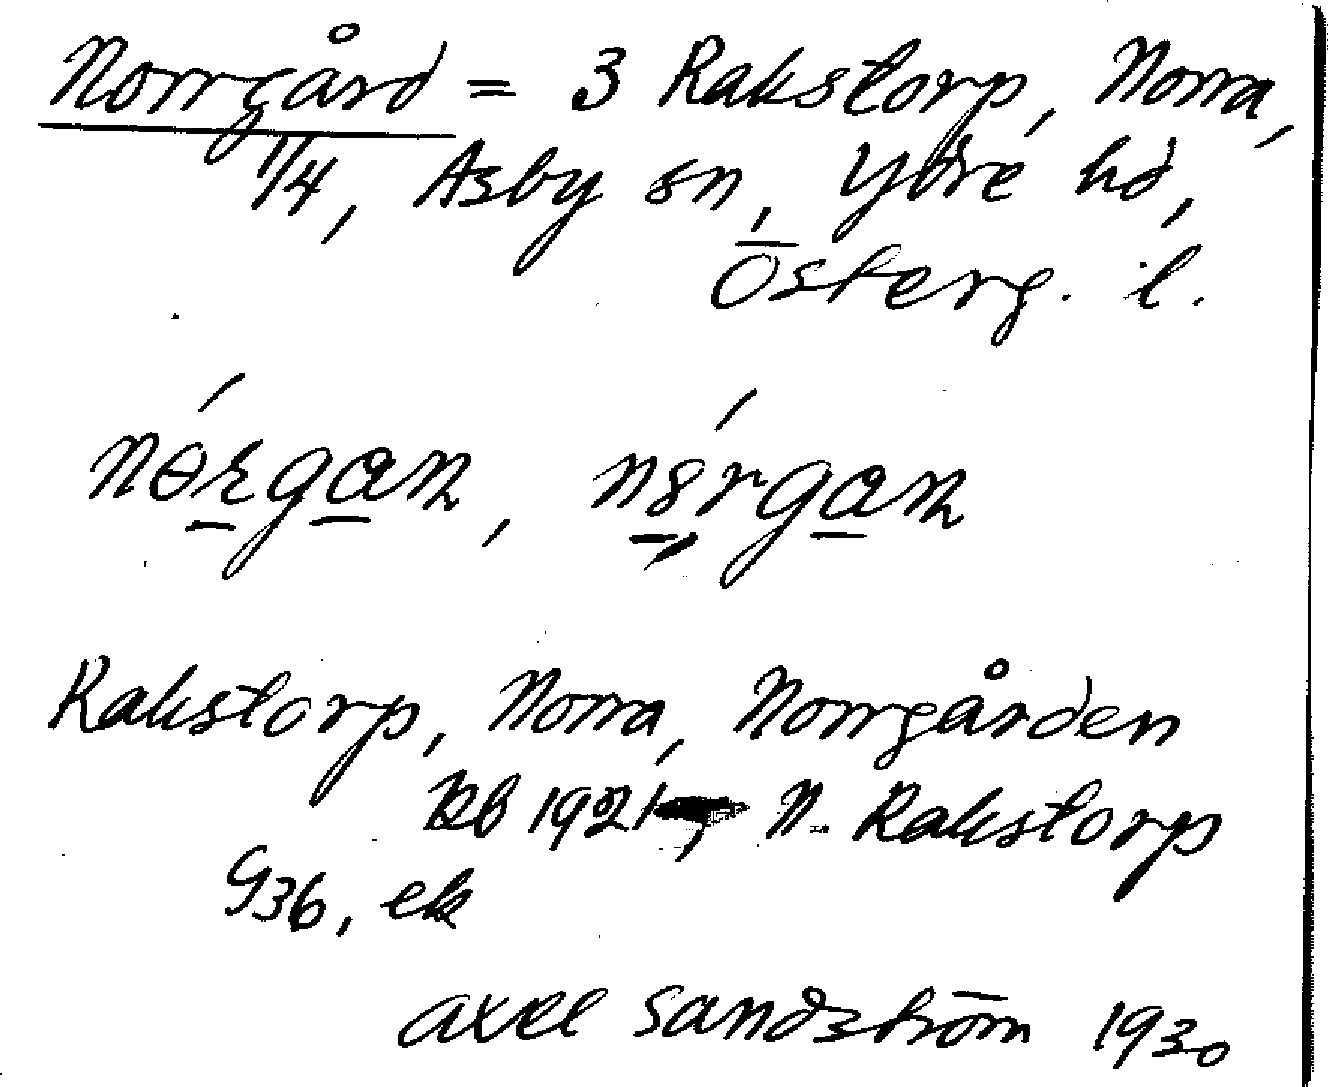 Norrgård = 3 Rakstorp, Norra,
1/4, Asby sn, Ydre hd,
Österg. l.
nɵ́rgan, nǿrgan
Rakstorp, Norra, Norrgården
Kb 1921, N. Rakstorp
G36, ek
Axel Sandström 1930